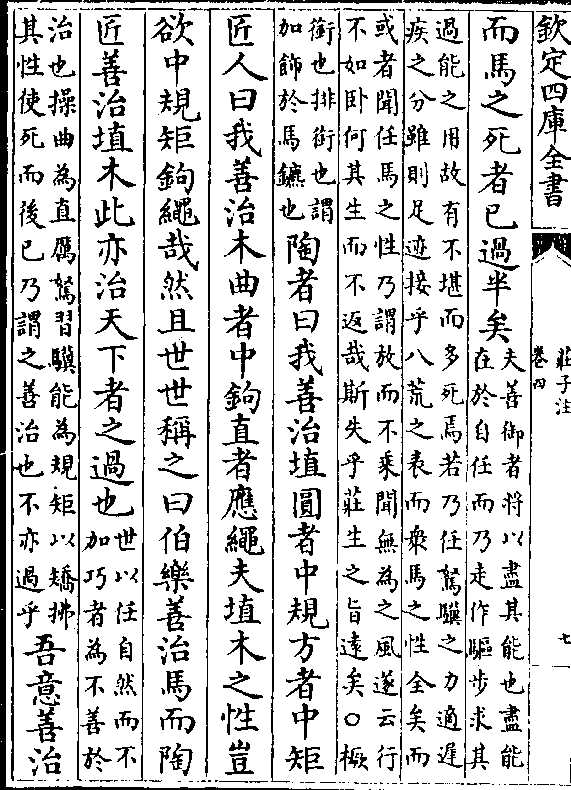 欽定四庫全書
莊子注
卷四
七
而馬之死者已過半矣
夫善御者將以盡其能也盡能
在於自任而乃走作驅步求其
過能之用故有不堪而多死焉若乃任駑驥之力適遲
疾之分雖則足迹接乎八荒之表而衆馬之性全矣而
或者聞任馬之性乃謂放而不乘聞無為之風遂云行
不如卧何其生而不返哉斯失乎莊生之旨遠矣○橛
銜也排銜也謂
加飾於馬鑣也
陶者曰我善治埴圓者中規方者中矩
匠人曰我善治木曲者中鉤直者應繩夫埴木之性豈
欲中規矩鉤繩哉然且世世稱之曰伯樂善治馬而陶
匠善治埴木此亦治天下者之過也
世以任自然而不
加巧者為不善於
治也操曲為直厲駑習驥能為規矩以矯拂
其性使死而後已乃謂之善治也不亦過乎
吾意善治